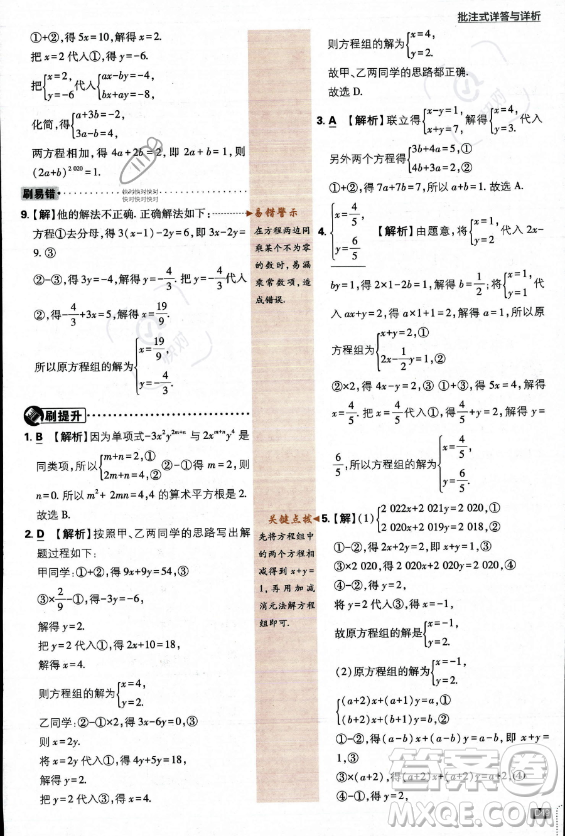 批注式详答与详析
①+②,得5x=10,解得x=2.
把x=2代入①,得y=-6.
把{x=2, y=-6 代入{ax-by=-4, bx+ay=-8,
化简,得{a+3b=-2, 3a-b=4,
两方程相加,得4a+2b=2,即2a+b=1,则
(2a+b)^{2 020}=1.
刷易错
9.【解】他的解法不正确.正确解法如下:
方程①去分母,得3(x-1)-2y=6,即3x-2y=
9.③
②-③,得3y=-4,解得y=-4/3.把y=-4/3代入
②,得-4/3+3x=5,解得x=19/9.
所以原方程组的解为{x=19/9, y=-4/3.
刷提升
1. B 【解析】因为单项式-3x²y^{2m+n}与2x^{m+n}y⁴是
同类项,所以{m+n=2,① 2m+n=4,② ②-①得m=2,则
n=0.所以m²+2mn=4,4的算术平方根是2.
故选B.
2. D 【解析】按照甲、乙两同学的思路写出解
题过程如下:
甲同学:①+②,得9x+9y=54,③
③×2/9-①,得y=2.
解得y=2.
把y=2代入①,得2x+10=18,
解得x=4.
则方程组的解为{x=4, y=2.
乙同学:②-①,得3x-6y=0,
则x=2y.
将x=2y代入①,得9y=18,
解得y=2.
把y=2代入①,解得x=4.
易错警示
在方程两边同
乘某个不为零
的数时,易漏
乘常数项,造
成错误.
关键点拨
先将方程组中
的两个方程相
减得到x+y=
1,再用加减
消元法解方程
组即可.
则方程组的解为{x=4, y=2.
故甲、乙两同学的思路都正确.
故选D.
3. A 【解析】联立得{x-y=1, x+y=7,解得{x=4, y=3,代入
另外两个方程得{3b+4a=5, 4b+3a=2,
①+②得7a+7b=7,则a+b=1.故选A.
4. {x=4/5, y=6/5 【解析】由题意,将{x=1, y=2代入2x-
by=1,得2×1-2b=1,解得b=1/2;将{x=1, y=1代
入ax+y=2,得a×1+1=2,解得a=1.所以
原方程组为{x+y=2,① 2x-1/2y=1.②
②×2,得4x-y=2.③ ①+③,得5x=4,解得
x=4/5.把x=4/5代入①,得4/5+y=2,解得y=
6/5,所以原方程组的解为{x=4/5, y=6/5.
5.【解】(1){2 022x+2 021y=2 020,① 2 020x+2 019y=2 018,②
①-②,得2x+2y=2,即x+y=1,③
③×2 020,得2 020x+2 020y=2 020,④
①-④,得2x+y=0,⑤
⑤-③,得x=-1,
将x=-1代入③,得y=2,
故原方程组的解是{x=-1, y=2.
(2)原方程组的解为{x=-1, y=2.
{(a+2)x+(a+1)y=a,① (b+2)x+(b+1)y=b,②
①-②,得(a-b)x+(a-b)y=a-b,即x+y=1,③
③×(a+2),得(a+2)x+(a+2)y=a+2,④
答案圈
MXQE.COM